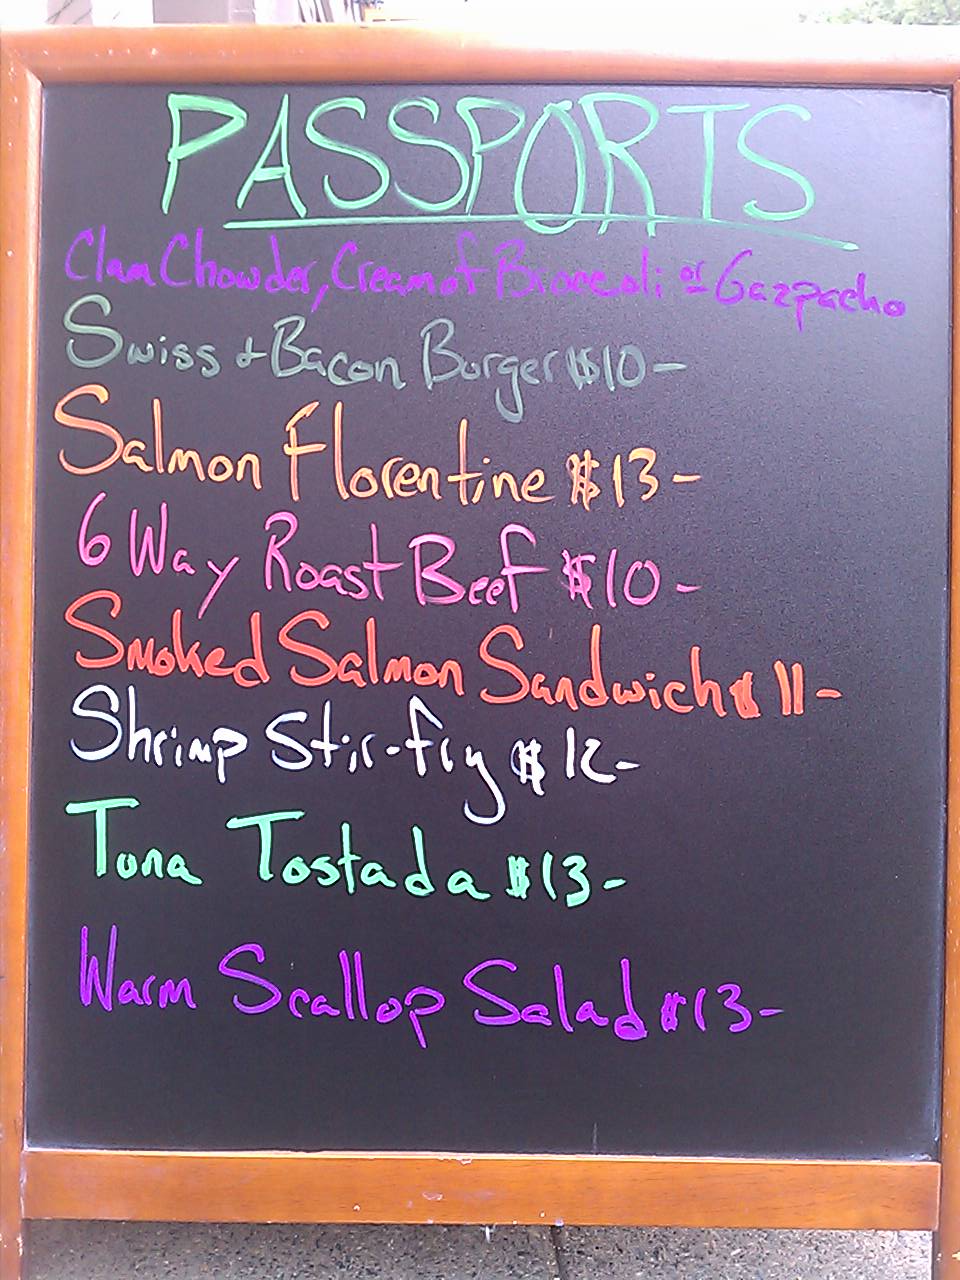 PASSPORTS
Clam Chowder, Cream of Broccoli or Gazpacho
Swiss + Bacon Burger $10-
Salmon Florentine $13-
6 Way Roast Beef $10-
Smoked Salmon Sandwich $11-
Shrimp Stir-fry $12-
Tuna Tostada $13-
Warm Scallop Salad $13-